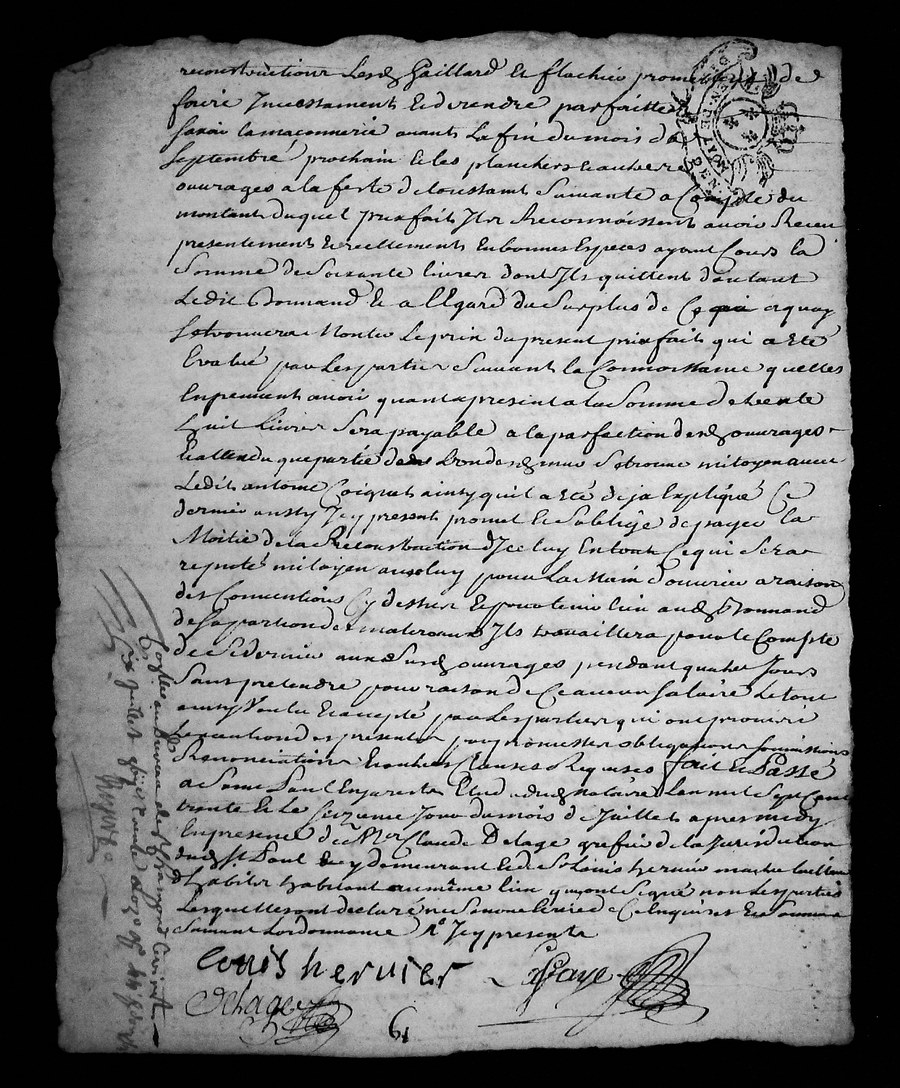 reconstruction Lesd Gaillard Et flachier promettent de
faire Incessament Et de rendre parfaitte
savoir la maçonnerie avant La fin du mois de
Septembre prochain Et les planchers Et autres
ouvrages a la feste de toussaint Suivante a Compte du
montant duquel prixfait Ils Reconnoissent avoir Receu
presentement Et reellement En bonnes Especes ayant Cours la
Somme de Soixante livres dont Ils quittent d'autant
Ledit Bonnand Et a l'Egard du Surplus de Ce a quoy
Se trouvera Monter Le prix du present prixfait qui a Eté
Evalué par Les parties Suivant la Connoissance quelles
En peuvent avoir quant a present a la Somme de trente
huit Livres Sera payable a la perfection desd ouvrages
Et attendu que partie de Lun desd murs Se trouve mitoyen avec
Ledit antoine Coignet ainsy quil a Eté deja Expliqué Ce
dernier aussy Icy present promet Et Soblige de payer la
Moitié de la Reconstruction d'Iceluy En tout Ce qui Sera
reputé mitoyen pour La Main d'ouvrier a raison
des Conventions Cy dessus Et pour tenir lieu aud Bonnand
de Sa portion des materiaux Il travaillera pour le Compte
de Ce dernier auxd Susd ouvrages pendant quatre Jours
Sans pretendre pour raison de Ce aucun Salaire Le tout
ainsy Voulu Et accepté par Les parties qui ont promis
L'execution des presentes par promesses obligations Soumissions
Renonciations Et autres Clauses Requises fait Et Passé
a Saint Paul En Jarest Etude dud Notaire Lan mil Sept Cent
trente Et Le Seizieme Jour du mois de Juillet apres midy
En presence de Mr Claude Delage grefier de la Jurisdiction
dud St Paul Et y demeurant Et de Sr Louis hervier maitre
d'habits habitant au même lieu qui ont Signé non Les parties
Lesquelles ont declaré ne Savoir Ecrire de Ce Enquises Et Sommées
Suivant Lordonnance Icy presents
Louis hervier
Delage
6